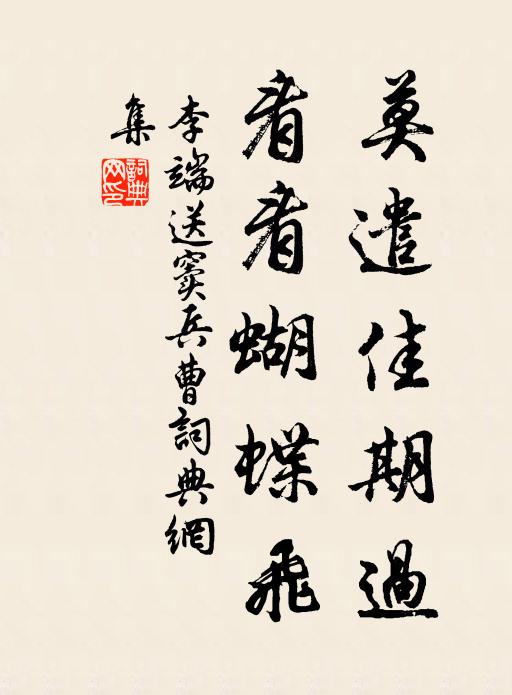 莫遣佳期過
看看蝴蝶飛
李端送竇兵曹詞典網
集
詞典
網印